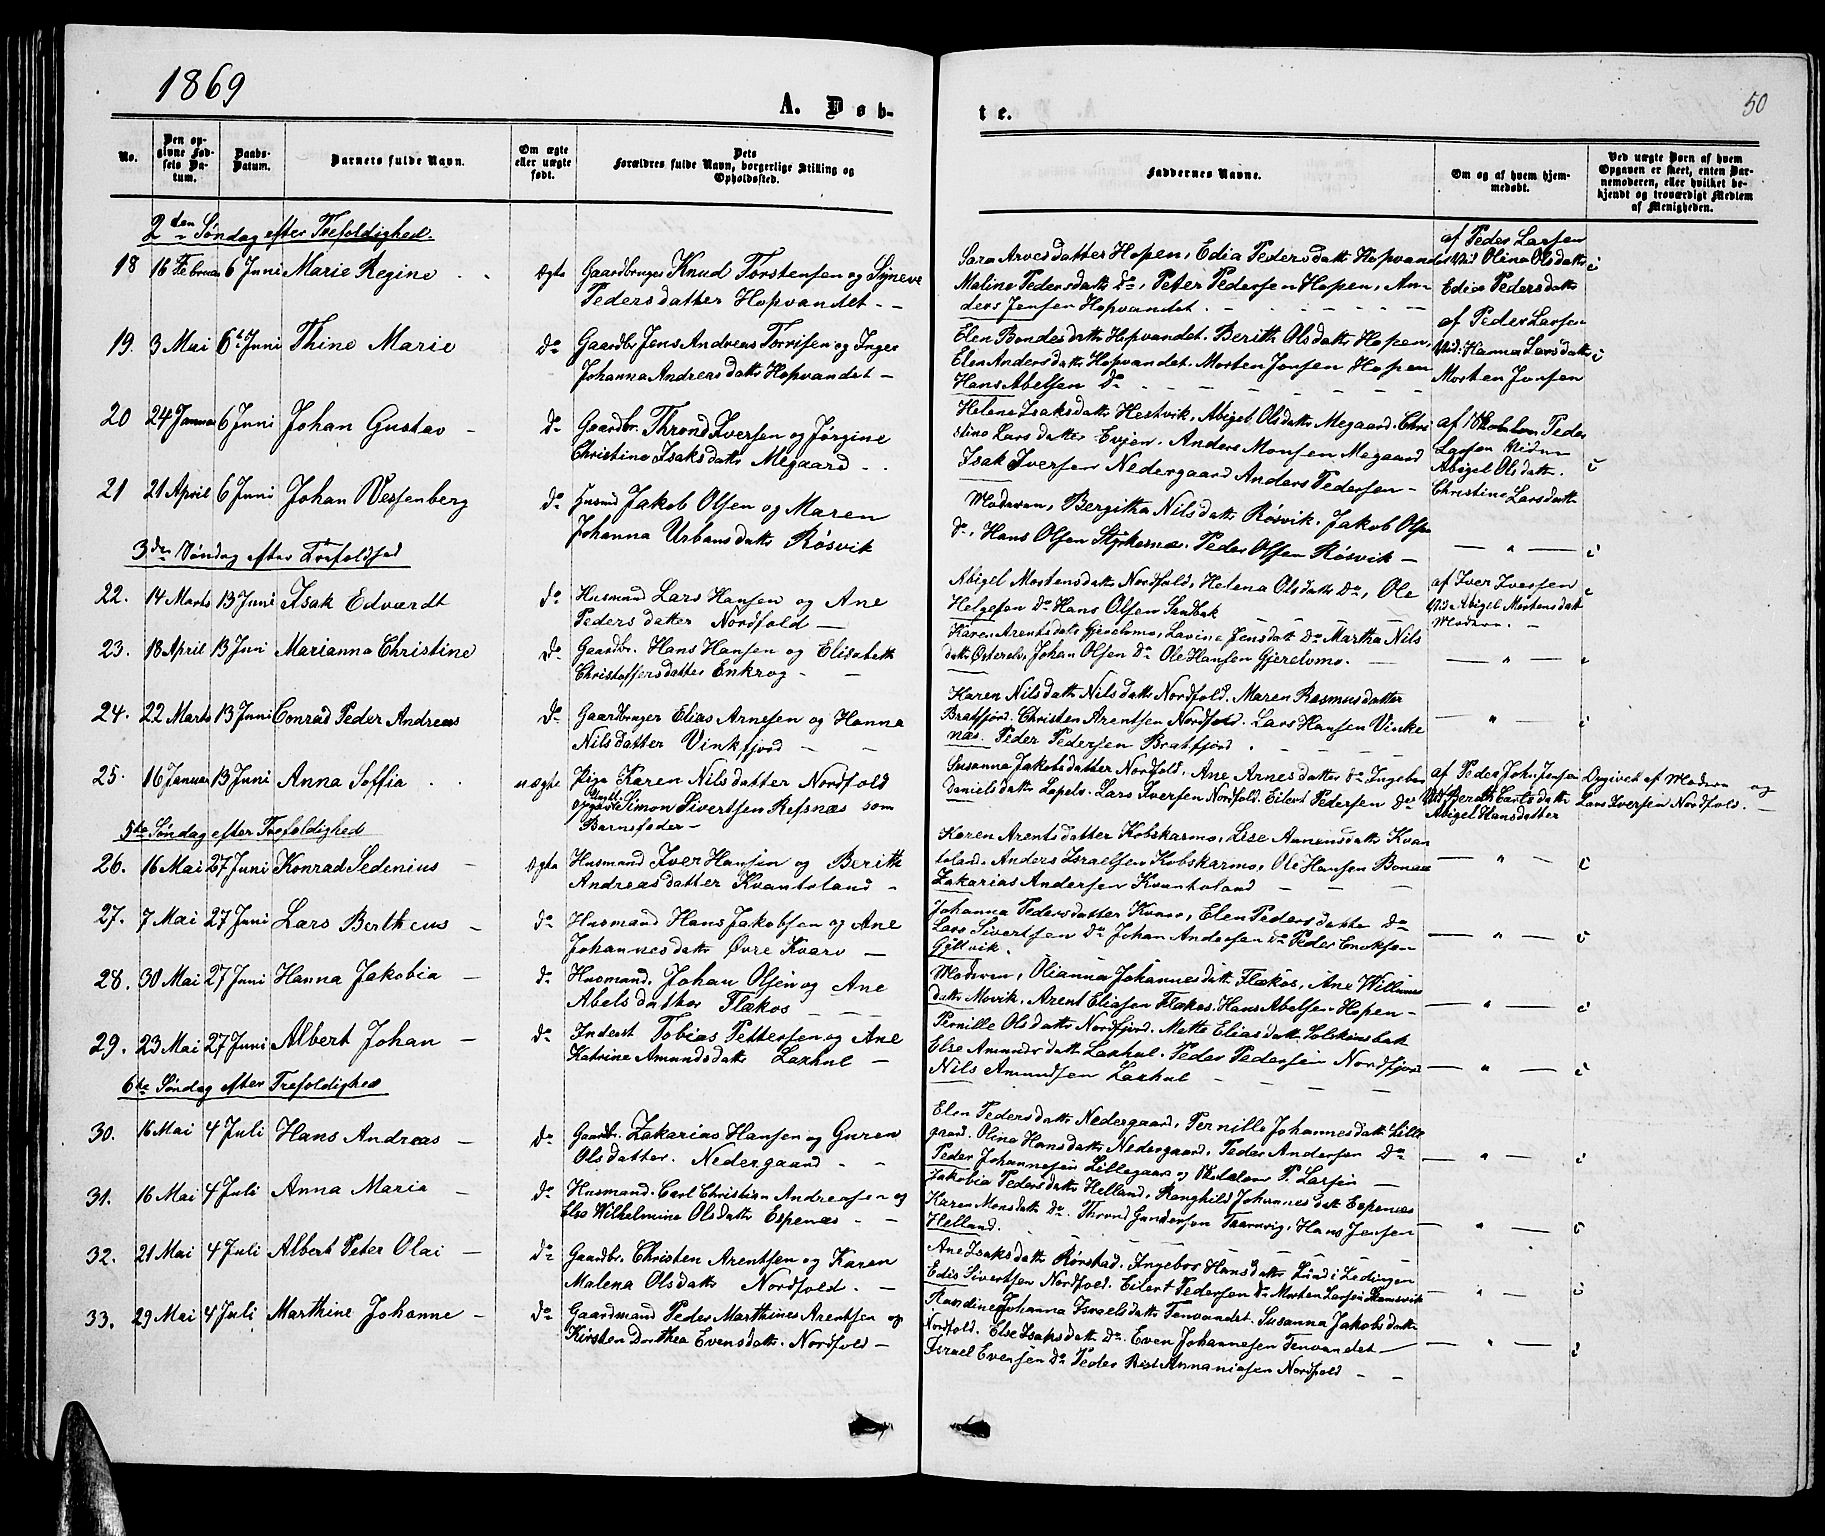 1869
A. Døb-
te.
50
No.
Den opgivne Fødsels Datum.
Daabs-Datum.
Barnets fulde Navn.
Om ægte eller uægte født.
Dets Forældres fulde Navn, borgerlige Stilling og Opholdssted.
Faddernes Navne.
Om og af hvem hjemmedøbt.
Ved uægte Børn af hvem Opgaven er skeet, enten Barnemoderen, eller hvilket bekjendt og troværdigt Medlem af Menigheden.
2den Søndag efter Trefoldighed.
18 16 Februar 6 Juni Marie Regine ægte Gaardbruger Knud Torstensen og Syneve
Pedersdatter Hopvandet
Sara Arvesdatter Hopen, Edia Pedersdatter Hopvandet
Maline Pedersdatt do, Peter Pedersen Hopen, An-
ders Jensen Hopvandet
af Peder Larsen
Vid Olina Olsdatt
Edia Pedersdatt
19. 3 Mai 6te Juni Thine Marie do Gaardbr Jens Andreas Torrisen og Inger
Johanna Andreasdatt Hopvandet
Elen Bendesdatt Hopvandet. Berith Olsdatt Hopen,
Elen Andersdatt Hopvandet. Morten Jonsen Hopen
Hans Abelsen do
af Peder Larsen
Vid: Hanna Larsdatt
Morten Jonsen
20 24 Januar 6 Juni Johan Gustav do Gaardbr. Thrond Iversen og Jørgine
Christine Isaksdatt Megaard
Helene Isaksdatt Hestvik, Abigel Olsdatt Megaard, Chri
stine Larsdatter Evjen. Anders Monsen Megaard
Isak Iversen Nedergaard Anders Pedersen
af Skoleln Peder
Larsen Vidner
Abigel Olsdatt.
Christine Larsdatt
21 21 April 6 Juni Johan Wessenberg do Husmd Jakob Olsen og Maren
Johanna Urbansdatt Røsvik
Moderen, Bergitha Nilsdatt Røsvik, Jakob Olsen
do, Hans Olsen Styrkesnæs. Peder Olsen Røsvik
3die Søndag efter Trefoldhed
22. 14 Marts 13 Juni Isak Edvardt do Husmand Lars Hansen og Ane
Pedersdatter Nordfold
Abigel Mortensdatt Nordfold, Helena Olsdatt do, Ole
Helgesen do Hans Olsen Sandbak
af Iver Iversen
Vid. Abigel Mortensdatt
Moderen
23. 18 April 13 Juni Marianna Christine do Gaardbr. Hans Hansen og Elisabeth
Christoffersdatter Enkrog
Karen Arentsdatt Gjerelvmo, Lavine Jensdatt do Martha Nils
datt Østerelv, Johan Olsen do Ole Hansen Gjerelvmo.
24. 22 Marts 13 Juni Conrad Peder Andreas do Gaardbruger Elias Arnesen og Hanna
Nilsdatter Vinkfjord
Karen Nilsdatt Nilsdatt Nordfold. Maren Rasmusdatter
Bratfjord. Christen Arentsen Nordfold. Lars Hansen Vinke
næs. Peder Pedersen Bratfjord
25. 16 Januar 13 Juni Anna Soffia uægte Pige Karen Nilsdatter Nordfold
opgav Simon Sivertsen Refsnæs som
Barnefader
Susanna Jakobsdatter Nordfold, Ane Arnesdatter do Ingebor
Danielsdatt Løpels. Lars Iversen Nordfold. Eilert Pedersen do
af Peder John Jensen
Vid Gjerth Carlsdatt
Abigel Hansdatter
Opgivet af Moderen og
Lars Iversen Nordfold.
5te Søndag efter Trefoldighed
26. 16 Mai 27 Juni Konrad Sedenius ægte Husmand Iver Hansen og Berith
Andreasdatter Kvantoland
Karen Arentsdatter Kobskarmo, Lise Annensdatt Kvan
toland, Anders Israelsen Kobskarmo, Ole Hansen Bonaas
Zakarias Andersen Kvantoland
27. 7 Mai 27 Juni Lars Bertheus do Husmand Hans Jakobsen og Ane
Johannesdatt Øvre Kvarv
Johanna Pedersdatter Kvarv, Elen Pedersdatter do
Lars Sivertsen do Johan Andersen do Peder Enoksen
Gyltvik
28. 30 Mai 27 Juni Hanna Jakobia do Husmand. Johan Olsen og Ane
Abelsdatter Flækos
Moderen, Olianna Johannesdatt Flækos, Ane Willums
datt Movik, Arent Eliasen Flækos, Hans Abelsen Hopen
29. 23 Mai 27 Juni Albert Johan do Inderst Tobias Pettersen og Ane
Katrine Amundsdatt Laxhul
Pernille Olsdatt Nordfjord. Mette Eliasdatt Solskinsbak
Else Amundsdatt Laxhul. Peder Pedersen Nordfjord
Nils Amundsen Laxhul
6te Søndag efter Trefoldighed
30. 16 Mai 4 Juli Hans Andreas do Gaardbr. Zakarias Hansen og Guren
Olsdatter. Nedergaard
Elen Pedersdatt Nedergaard, Pernille Johannesdatt Lille
gaard. Olina Hansdatt Nedergaard, Peder Andersen do
Peder Johannesen Lillegaard og Skolelær P. Larsen
31. 16 Mai 4 Juli Anna Maria do Husmand. Carl Christian Andreasen og
Else Wilhelmine Olsdatt Espenæs
Jakobia Pedersdatt Helland, Ranghild Johannesdatt Espenæs
Karen Monsdatt do. Thrond Gundersen Taarnvig, Hans Jensen
Helland.
32. 21 Mai 4 Juli Albert Peter Olai do Gaardbr. Christen Arentsen og Karen
Malena Olsdatt Nordfold
Ane Isaksdatt Rørstad. Ingebor Hansdatt Lund i Ledingen
Edis Sivertsen Nordfold. Eilert Pedersen do Morten Larsen
33. 29 Mai 4 Juli Marthine Johanne do Gaardmand Peder Marthines Arentsen og
Kirsten Dorthea Evensdatt. Nordfold
Johanna Israelsdatt Tenvandet. Susanna Jakobsdatt
Nordfold. Else Isaksdatt do. Even Johannesen Tenvandet
Israel Evensen do Peder Annaniasen Nordfold